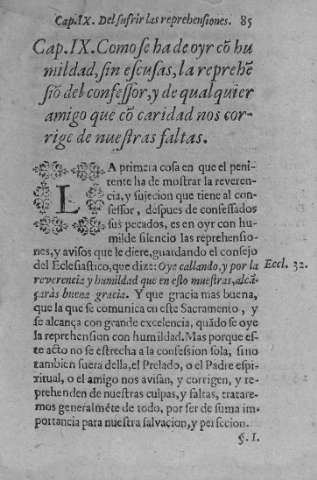 Cap. IX. Del sufrir las reprehensiones. 85
Cap. IX. Como se ha de oyr cõ hu
mildad, sin escusas, la reprehẽ
siõ del confessor, y de qualquier
amigo que cõ caridad nos cor-
rige de nuestras faltas.
LA primera cosa en que el peni-
tente ha de mostrar la reveren-
cia, y sujecion que tiene al con-
fessor, despues de confessados
sus pecados, es en oyr con hu-
milde silencio las reprehensio-
nes, y avisos que le diere, guardando el consejo
del Eclesiastico, que dize: Oye callando, y por la Eccl. 32.
reverencia y humildad que en esto muestras, alcã
çaràs buena gracia. Y que gracia mas buena,
que la que se comunica en este Sacramento, y
se alcança con grande excelencia, quãdo se oye
la reprehension con humildad. Mas porque es-
te acto no se estrecha a la confession sola, sino
tambien fuera della, el Prelado, o el Padre espi-
ritual, o el amigo nos avisan, y corrigen, y re-
prehenden de nuestras culpas, y faltas, trataré-
mos generalmẽte de todo, por ser de suma im-
portancia para nuestra salvacion, y perfeccion.
§. I.